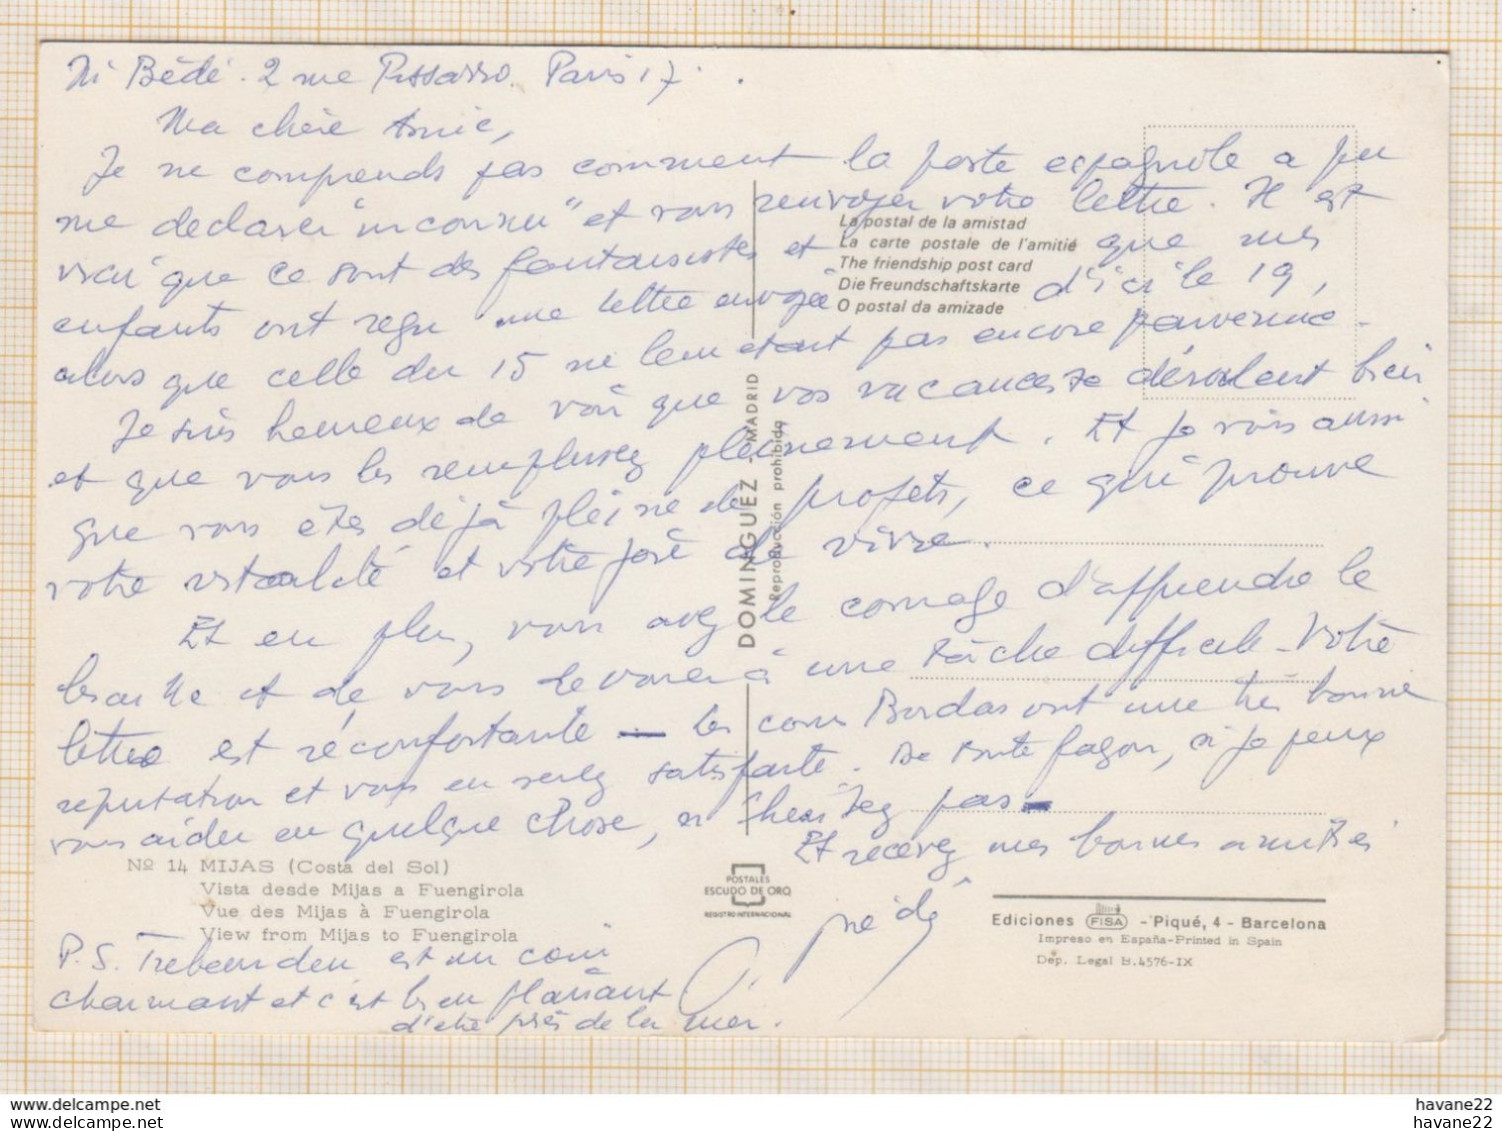 Mr Bédé. 2 rue Pissarro. Paris 17.
Ma chère Amie,
Je ne comprends pas comment la poste espagnole a pu
me déclarer "inconnu" et vous renvoyer votre lettre. Il est
vrai que ce sont des fantaisistes et que mes
enfants ont reçu une lettre envoyée d'ici le 19,
alors que celle du 15 ne leur etait pas encore parvenue.
Je suis heureux de voir que vos vacances se déroulent bien
et que vous les remplissez pleinement. Et je vois aussi
que vous êtes déjà pleine de projets, ce qui prouve
votre vitalité et votre joie de vivre.
Et en plus, vous avez le courage d'apprendre le
braille et de vous dévouer à une tâche difficile. Votre
lettre est réconfortante — Les cours Bordas ont une très bonne
réputation et vous en serez satisfaite. De toute façon, si je peux
vous aider en quelque chose, n'hésitez pas —
Et recevez mes bonnes amitiés
P.S. Trebeurden est un coin
charmant et c'est bien plaisant
d'être près de la mer.
La postal de la amistad
La carte postale de l'amitié
The friendship post card
Die Freundschaftskarte
O postal da amizade
DOMINGUEZ - MADRID
Reproducción prohibida
Nº 14 MIJAS (Costa del Sol)
Vista desde Mijas a Fuengirola
Vue des Mijas à Fuengirola
View from Mijas to Fuengirola
POSTALES
ESCUDO DE ORO
REGISTRO INTERNACIONAL
Ediciones FISA - Piqué, 4 - Barcelona
Impreso en España-Printed in Spain
Dep. Legal B.4576-IX
havane22
havane22
havane22
havane22